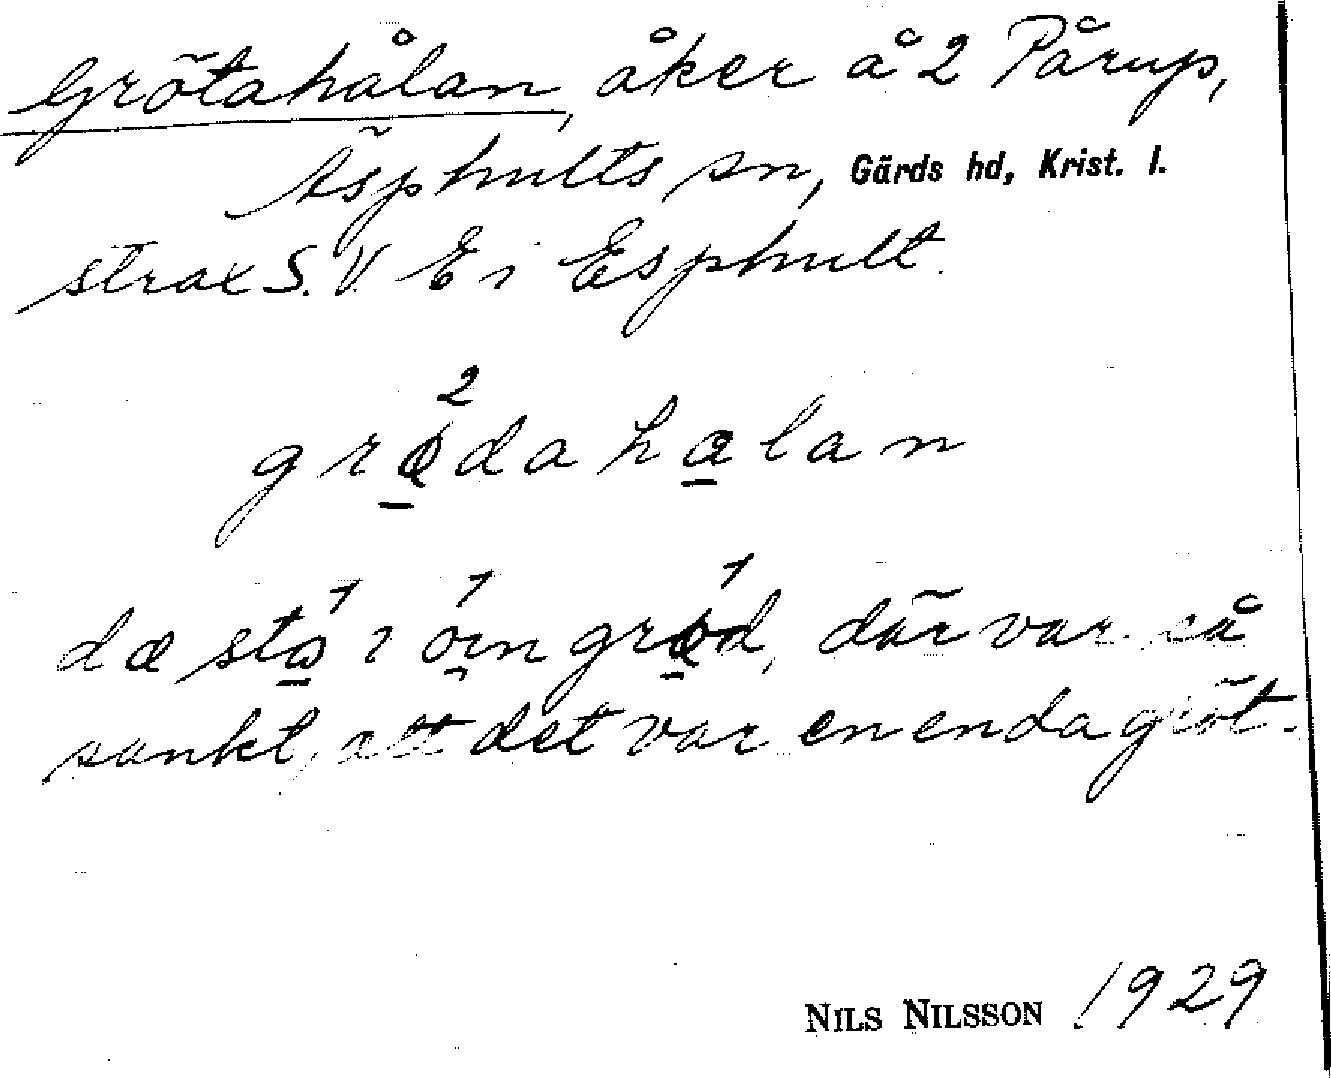 Grötahålan, åker å 2 Pårup,
Äsphults sn, Gärds hd, Krist. l.
strax S.V. E i Esphult.
2
grødahalan
dæ sto i øin grød, där var så
sankt, att det var en enda gröt.
NILS NILSSON 1929